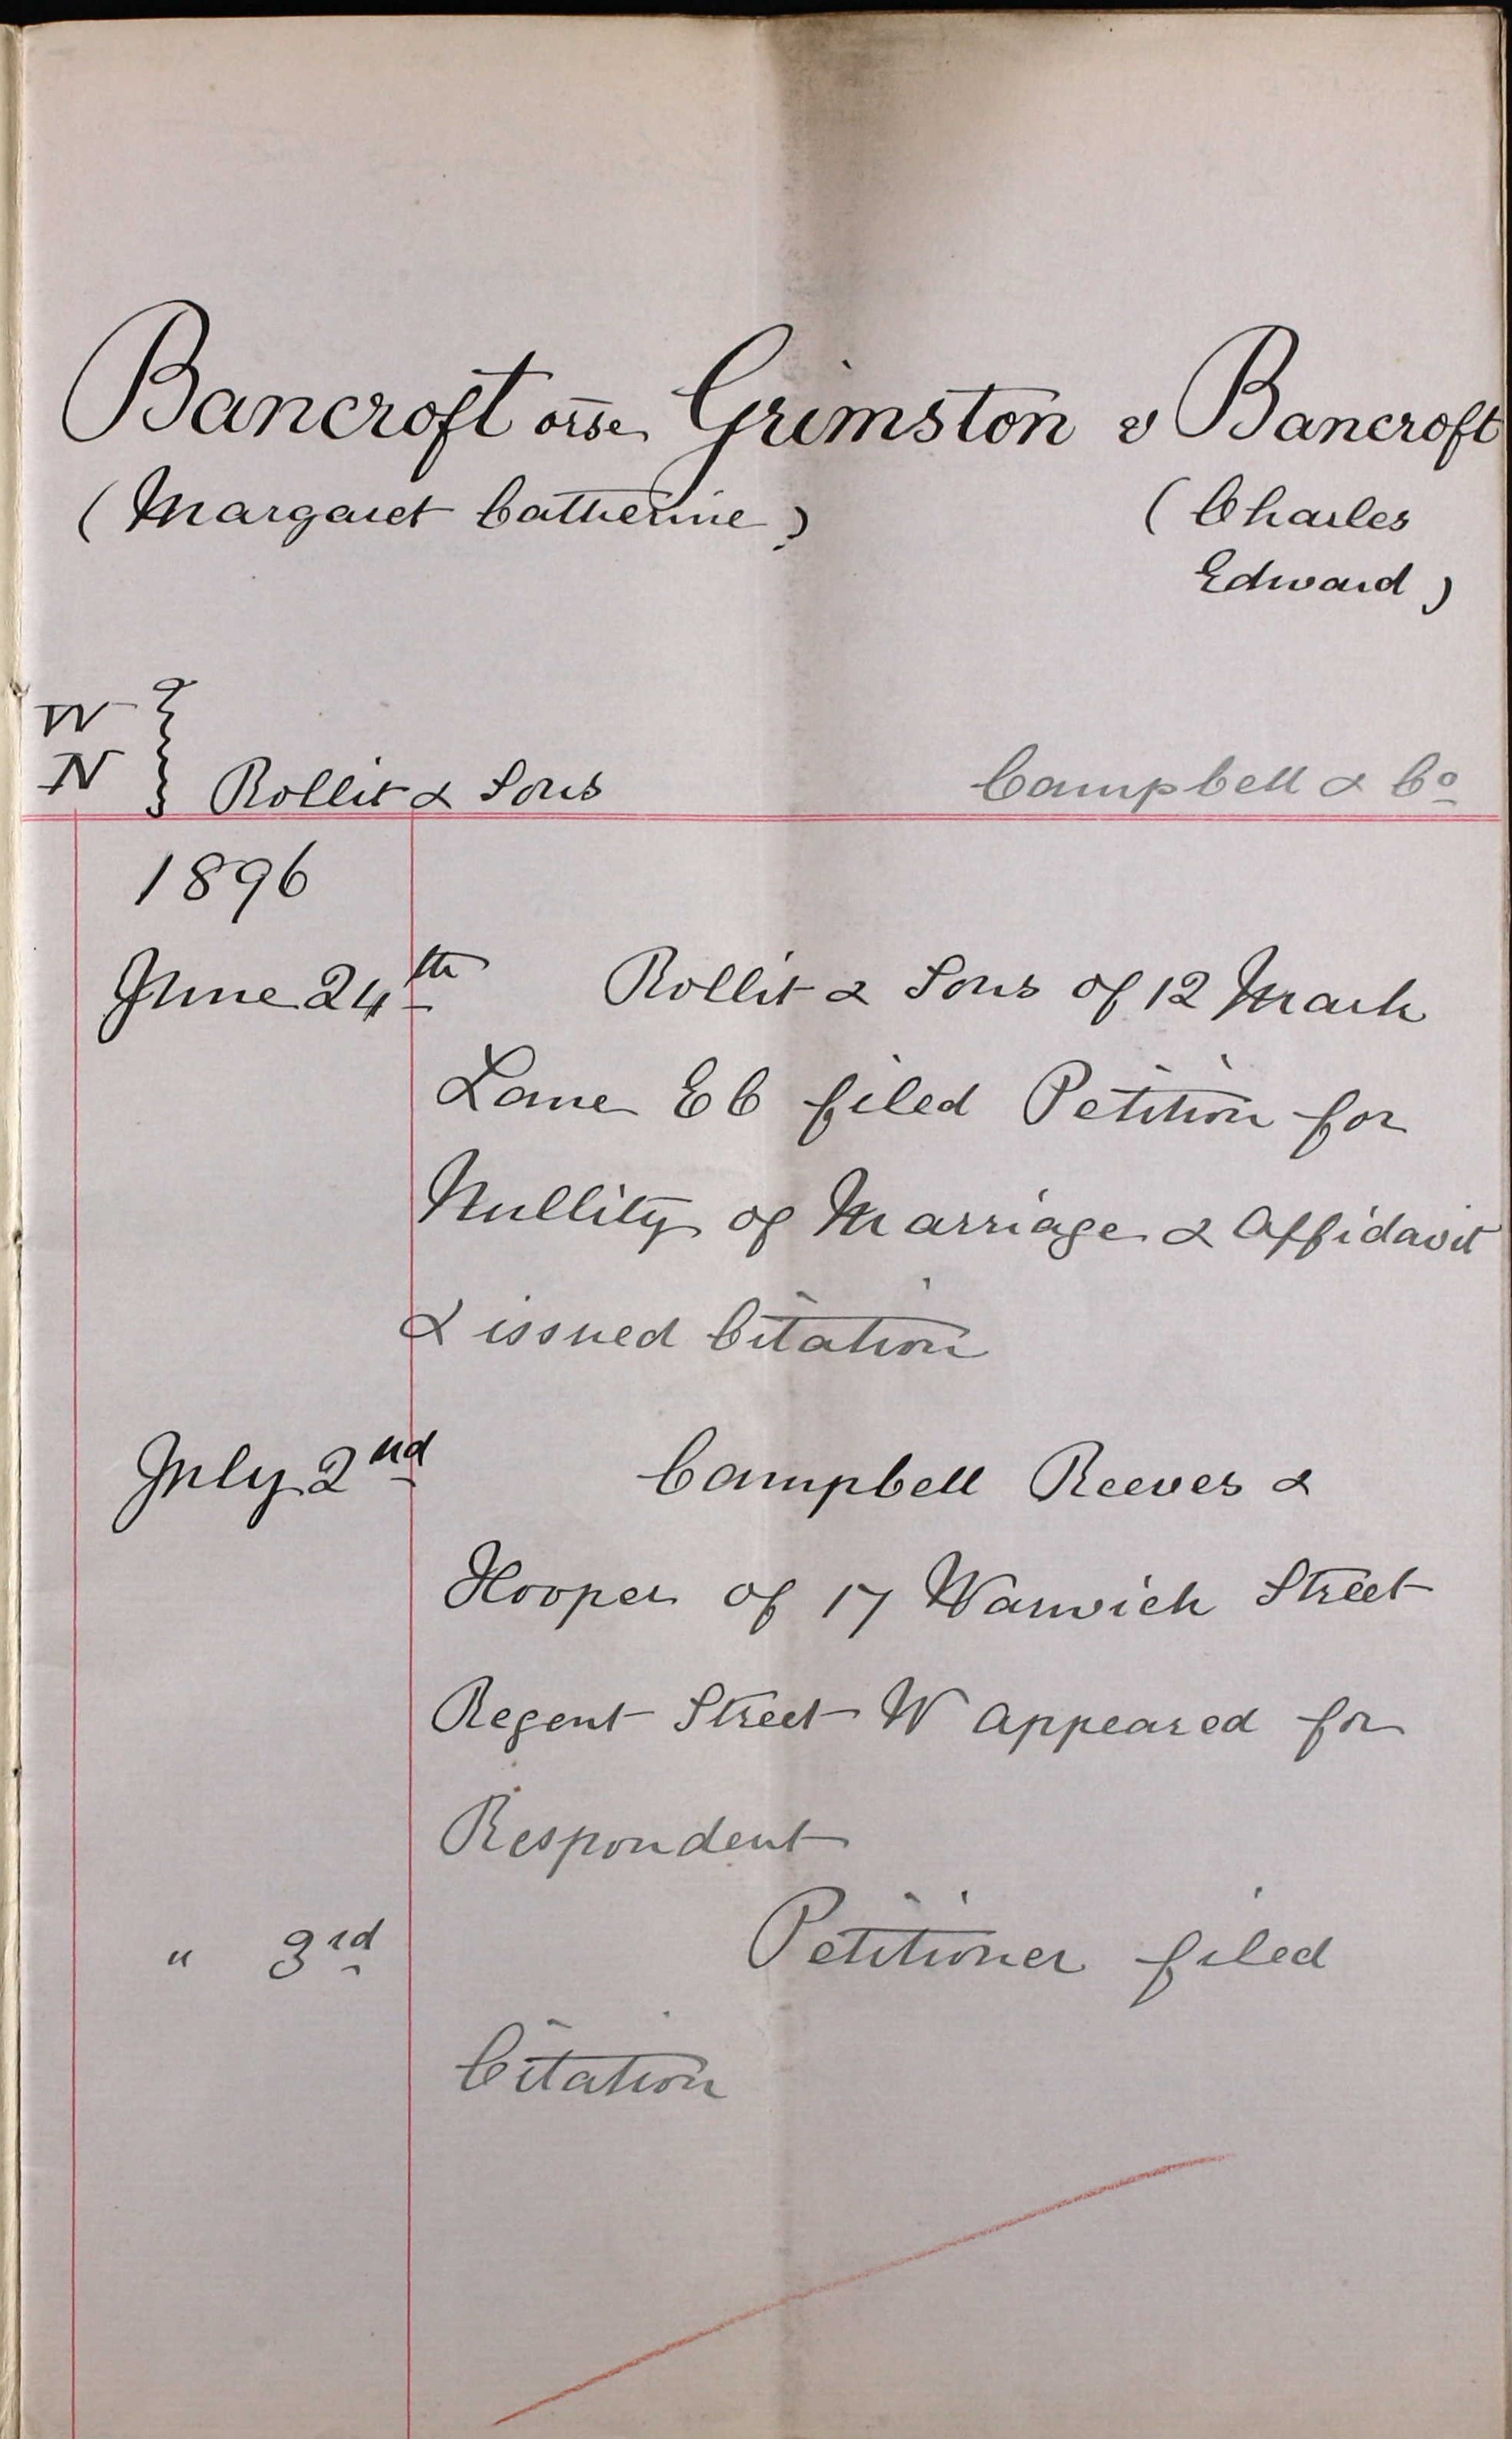 Bancroft orse Grimston v Bancroft
(Margaret Catherine)
(Charles
Edward)
W
N } Rollit & Sons
Campbell & Co
1896
June 24th Rollit & Sons of 12 Mark
Lane EC filed Petition for
Nullity of Marriage & Affidavit
& issued Citation
July 2nd Campbell Reeves &
Hooper of 17 Warwick Street
Regent Street W appeared for
Respondent
" 3rd Petitioner filed
Citation